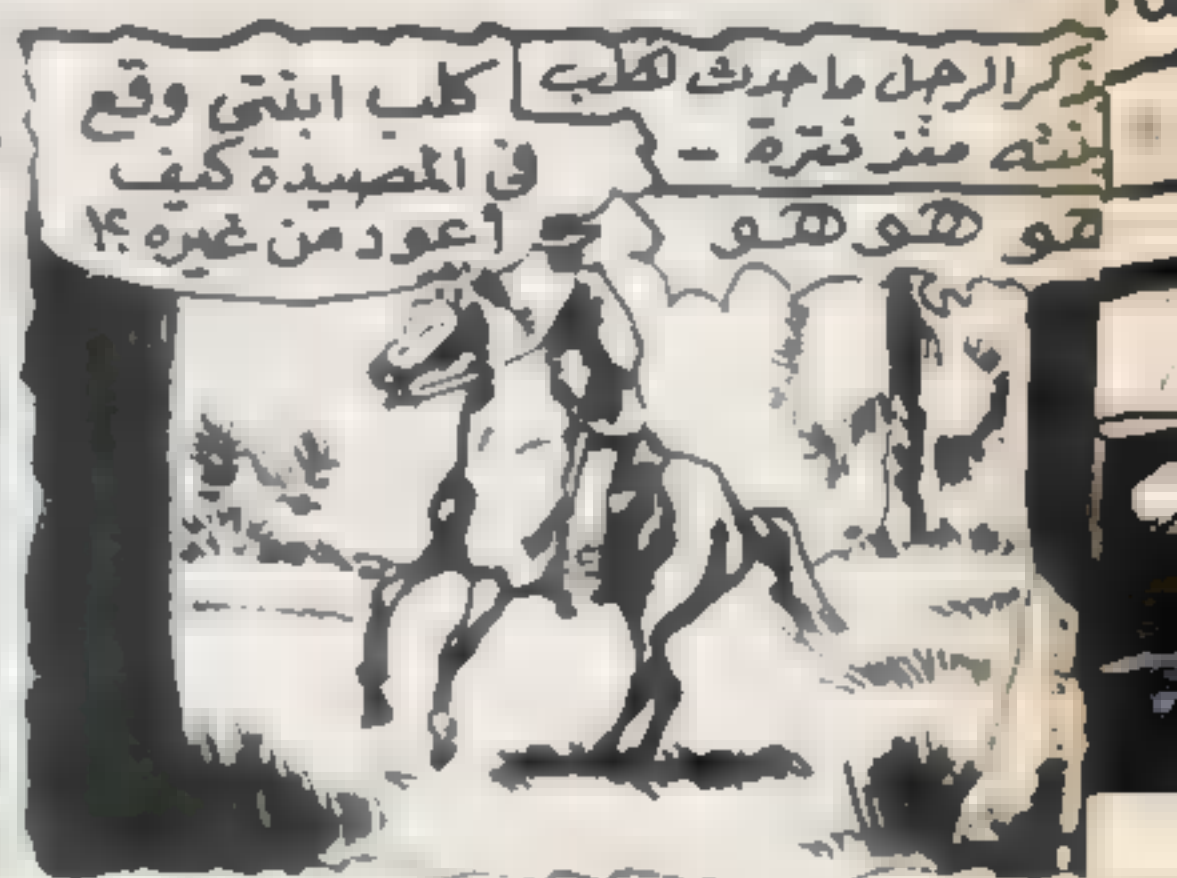 ذكر الرجل ما حدث لكلب
ابنته منذ فترة -
كلب ابنتى وقع
فى المصيدة كيف
أعود من غيره ؟!
هو هو هو